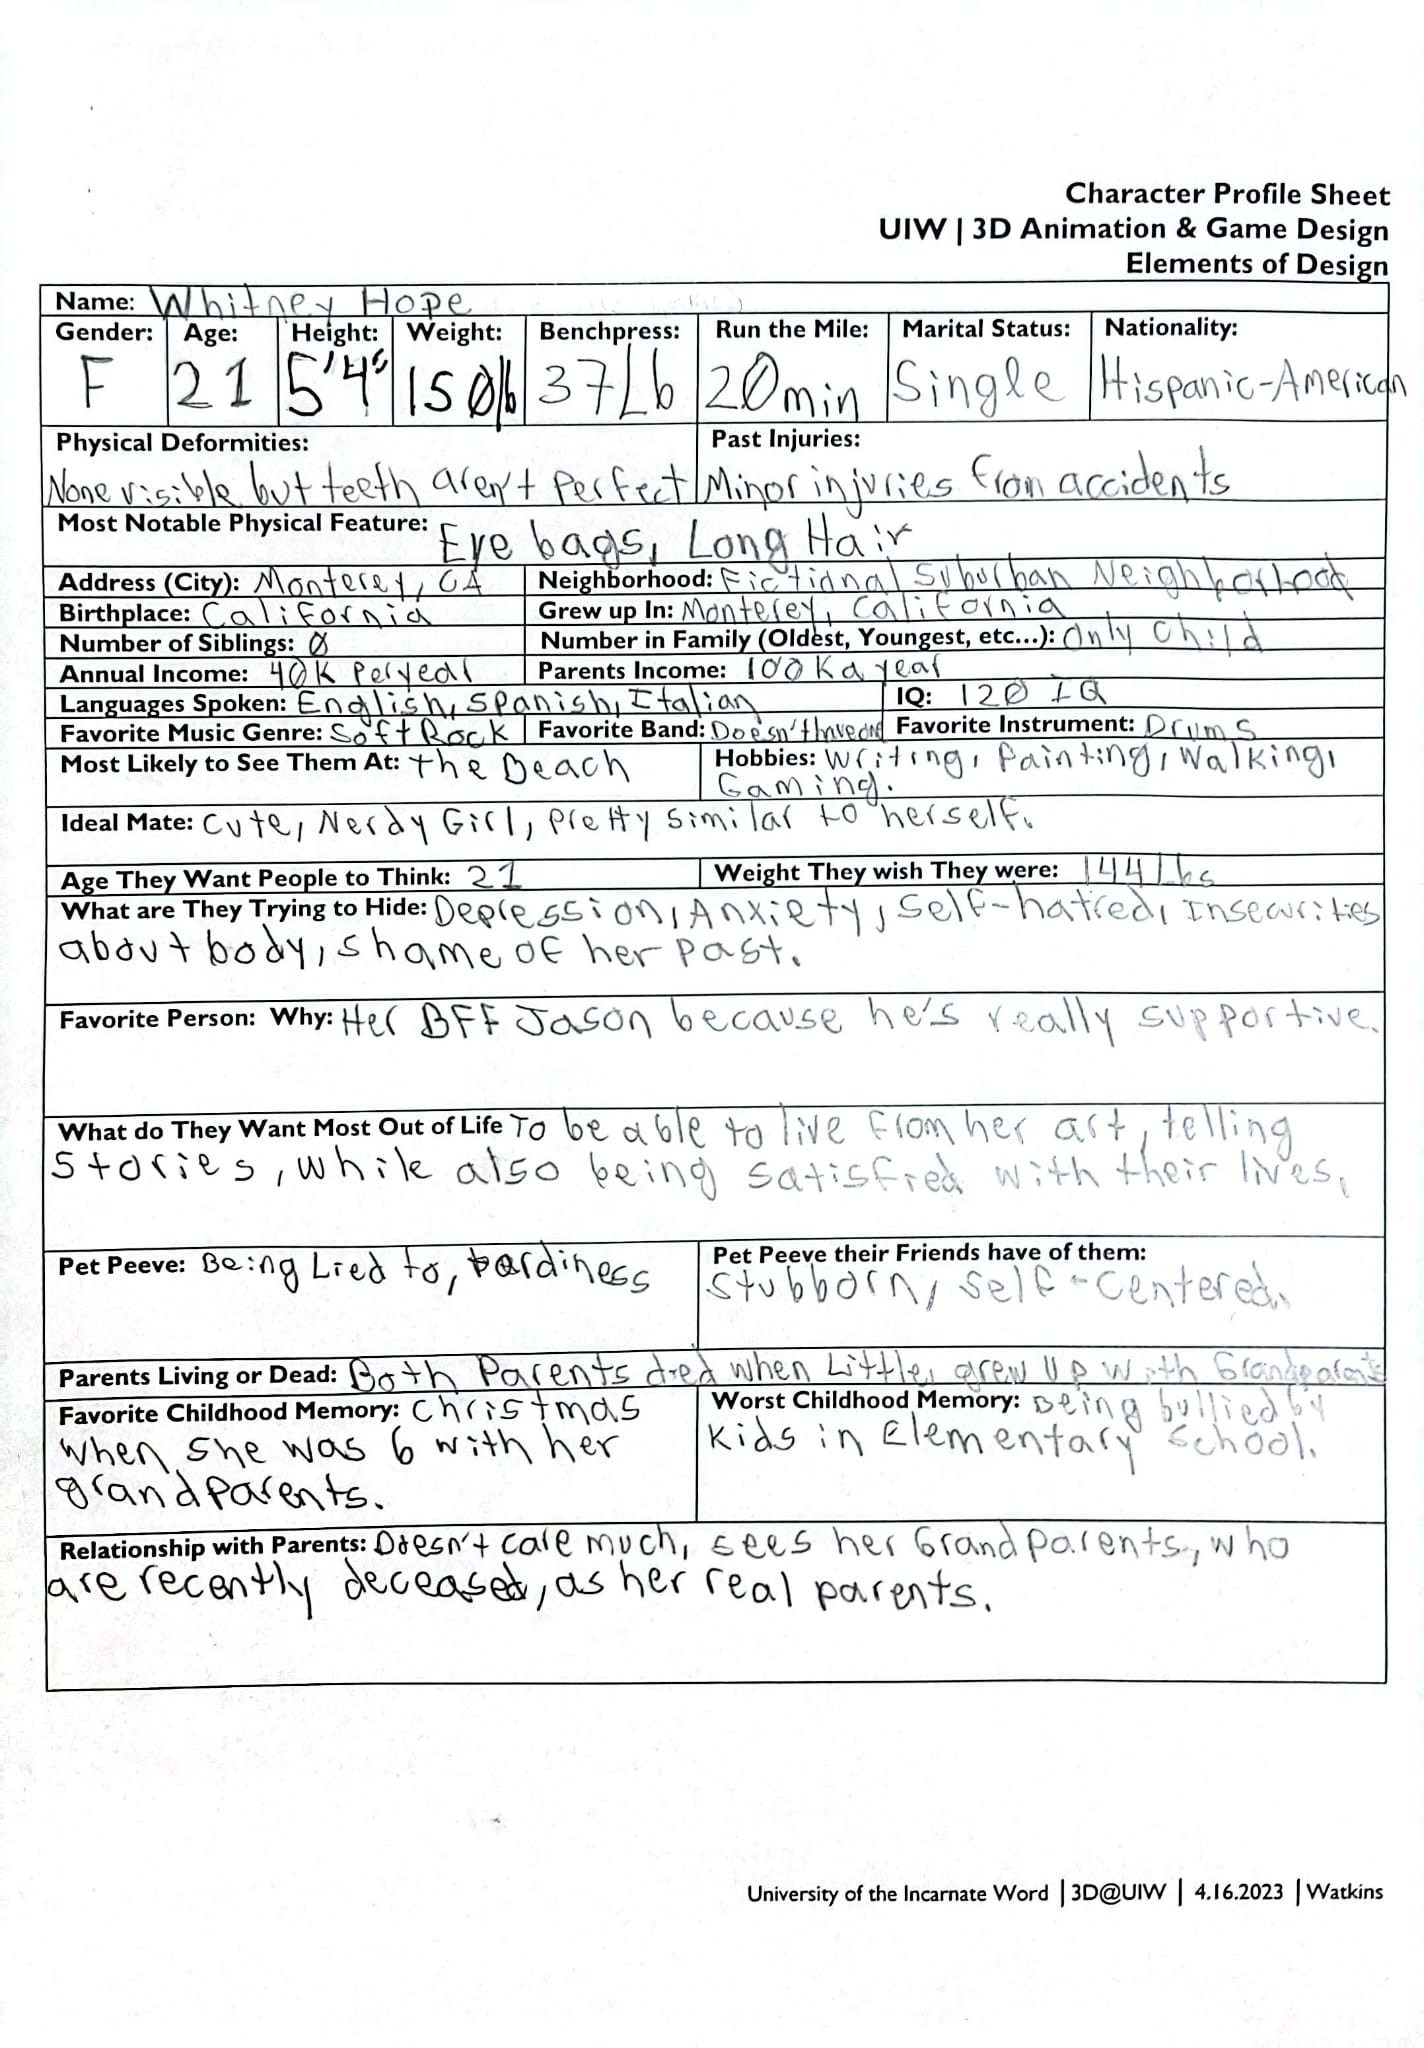 Character Profile Sheet
UIW | 3D Animation & Game Design
Elements of Design
Name: Whitney Hope
Gender: F Age: 21 Height: 5'4" Weight: 150lb Benchpress: 37Lb Run the Mile: 20min Marital Status: Single Nationality: Hispanic-American
Physical Deformities: Past Injuries:
None visible but teeth aren't perfect Minor injuries from accidents
Most Notable Physical Feature: Eye bags, Long Hair
Address (City): Monterey, CA Neighborhood: Fictional Suburban Neighborhood
Birthplace: California Grew up In: Monterey, California
Number of Siblings: 0 Number in Family (Oldest, Youngest, etc...): Only Child
Annual Income: 40K Per year Parents Income: 100K a year
Languages Spoken: English, Spanish, Italian IQ: 120 IQ
Favorite Music Genre: Soft Rock Favorite Band: Doesn't have one Favorite Instrument: Drums
Most Likely to See Them At: the Beach Hobbies: Writing, Painting, Walking,
Gaming.
Ideal Mate: Cute, Nerdy Girl, pretty similar to herself.
Age They Want People to Think: 21 Weight They wish They were: 144 Lbs
What are They Trying to Hide: Depression, Anxiety, Self-hatred, Insecurities
about body, shame of her past.
Favorite Person: Why: Her BFF Jason because he's really supportive.
What do They Want Most Out of Life To be able to live from her art, telling
stories, while also being satisfied with their lives.
Pet Peeve: Being Lied to, tardiness Pet Peeve their Friends have of them:
Stubborn, Self-Centered.
Parents Living or Dead: Both Parents died when Little, grew up with Grandparents
Favorite Childhood Memory: Christmas
when she was 6 with her
grandparents.
Worst Childhood Memory: Being bullied by
kids in Elementary School.
Relationship with Parents: Doesn't care much, sees her Grandparents, who
are recently deceased, as her real parents.
University of the Incarnate Word | 3D@UIW | 4.16.2023 | Watkins